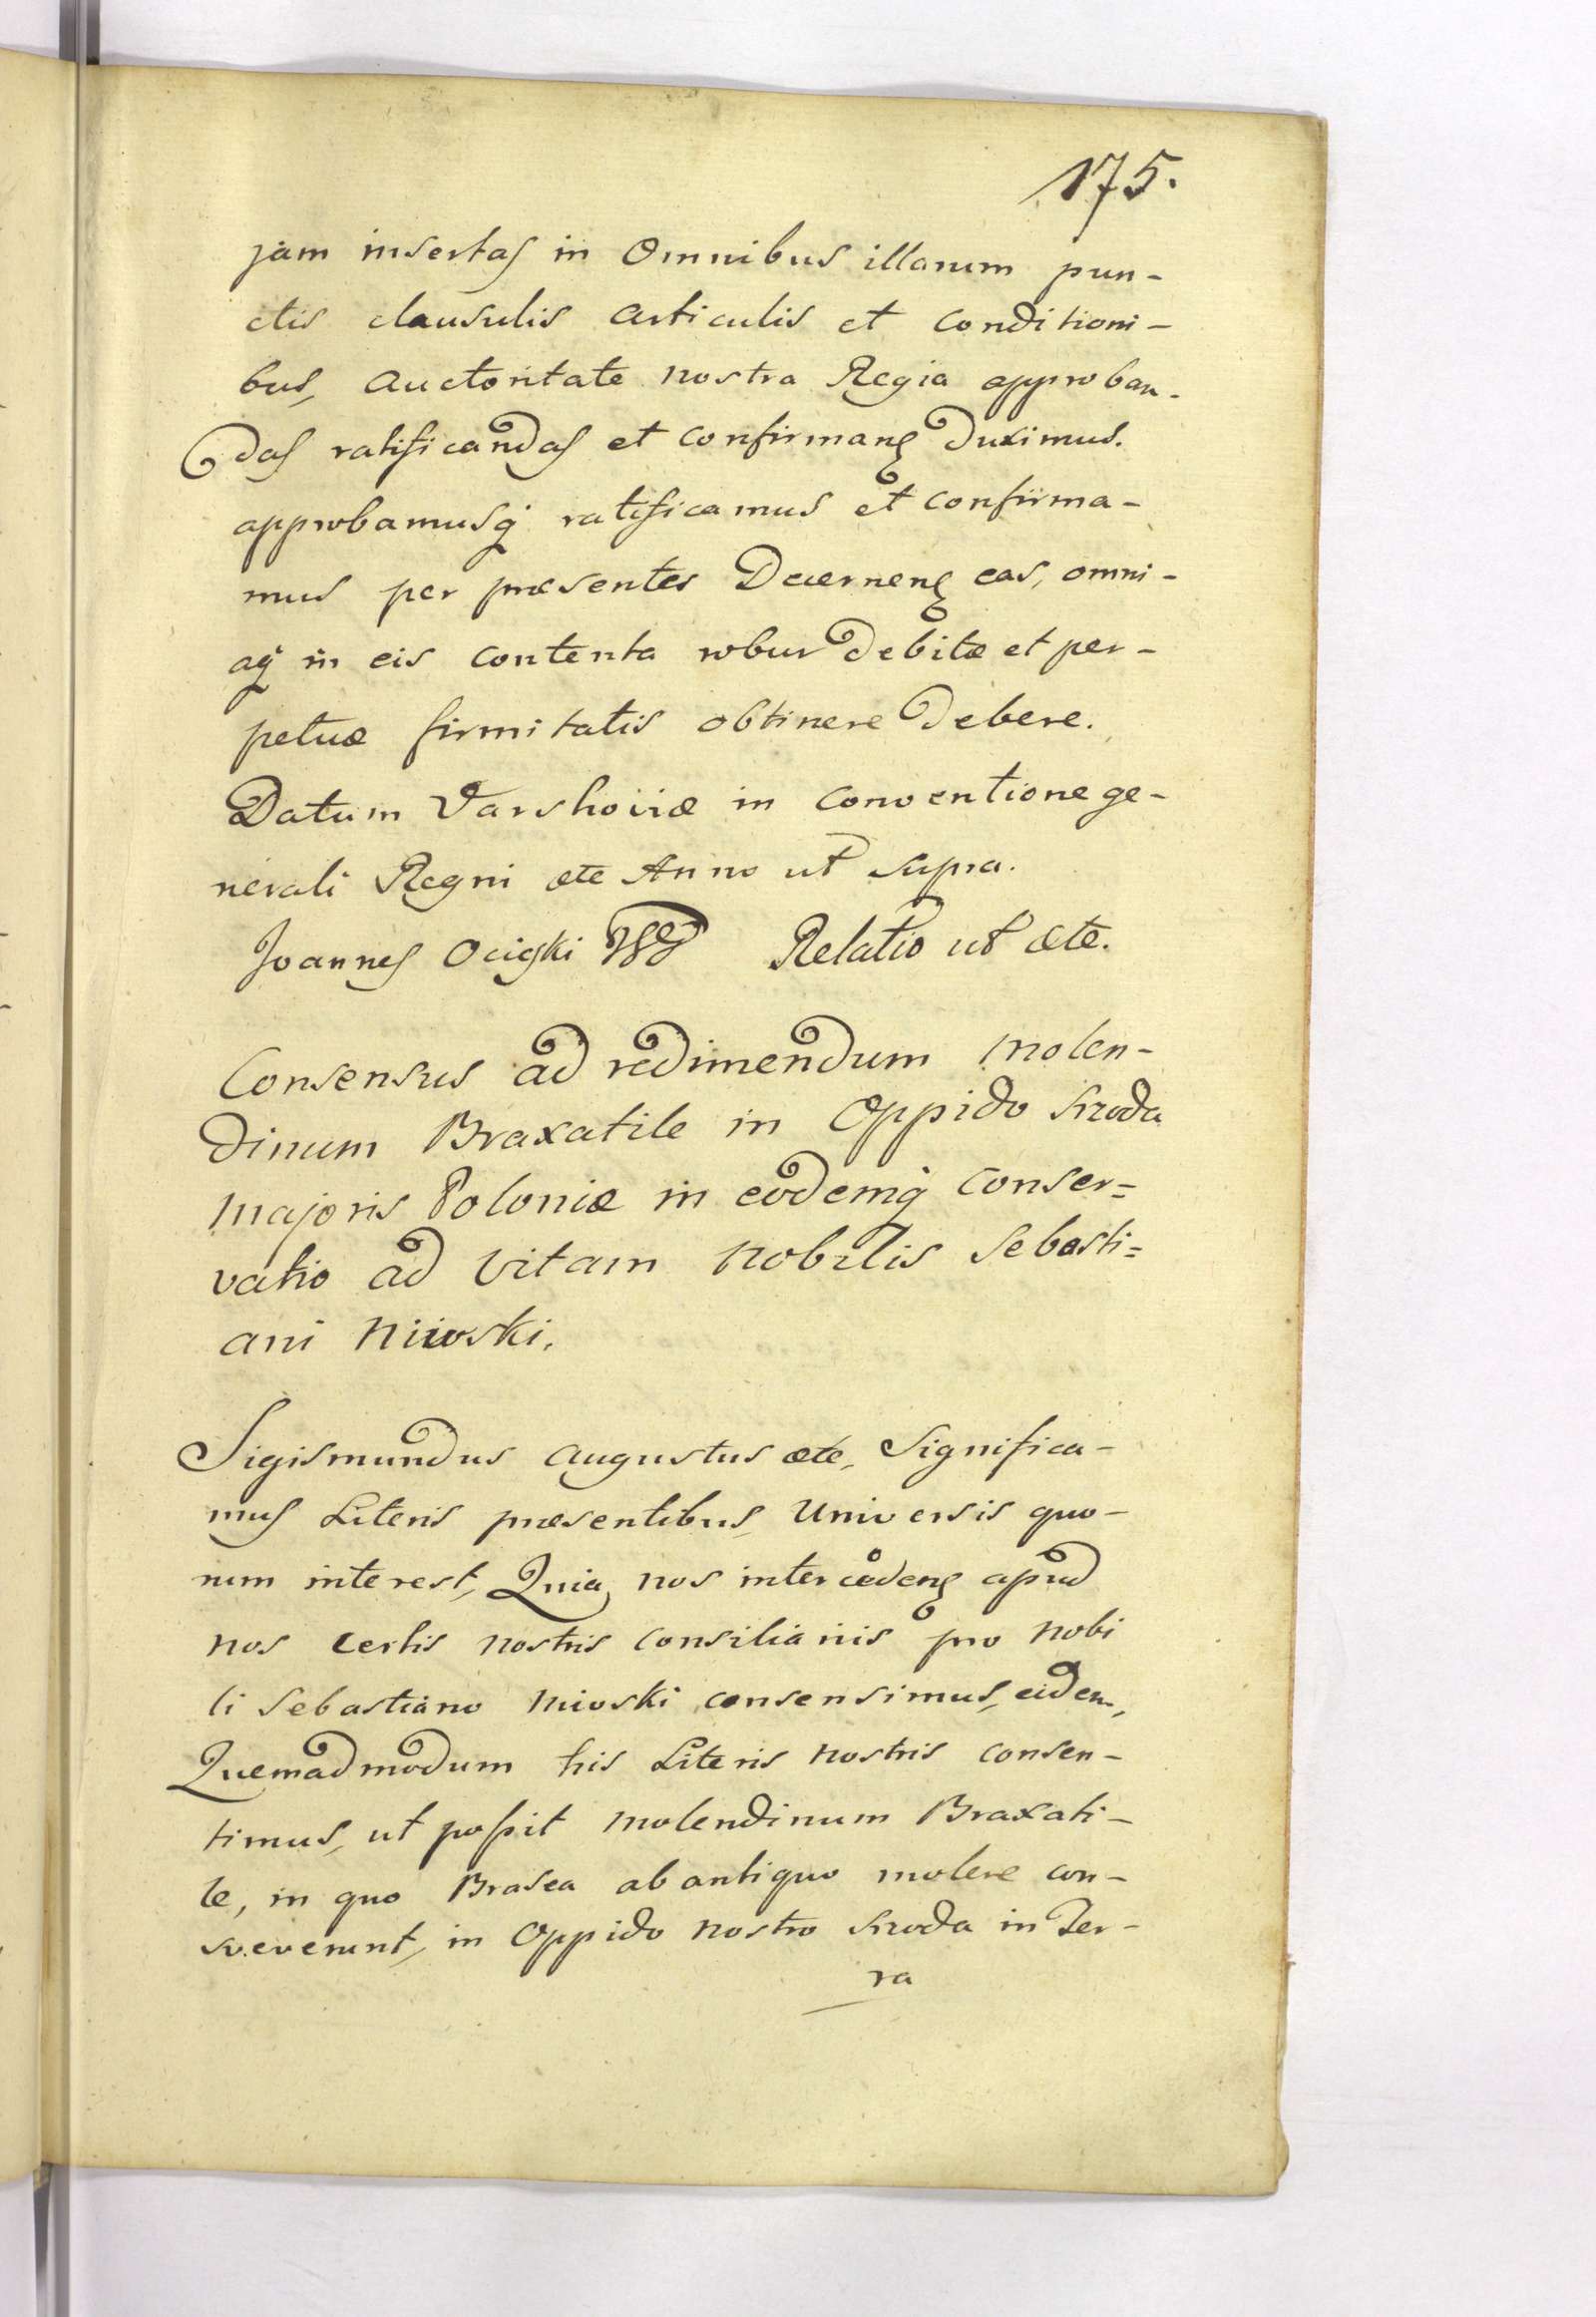 175.
jam insertas in Omnibus illarum pun-
ctis clausulis articulis et conditioni-
bus, auctoritate nostra Regia approban-
das ratificandas et confirmanꝫ duximus.
approbamusq́ ratificamus et confirma-
mus per præsentes Decernenꝫ eas, omni-
aq́ in eis contenta robur debitæ et per-
petuæ firmitatis obtinere debere.
Datum Varshoviæ in conventione ge-
nerali Regni etc Anno ut supra.
Joannes Ocieski Relatio ut etc.
Consensus ad redimendum molen-
dinum Braxatile in Oppido Sroda
majoris Poloniæ in eodemq́ conser=
vatio ad vitam nobilis Sebasti=
ani Niiwski.
Sigismundus Augustus etc, Significa-
mus Literis præsentibus, Universis quo-
rum interest, Quia nos intercedenꝫ apud
nos certis nostris consiliariis pro nobi
li Sebastiano Niwski consensimus, eidem,
Quemadmodum his Literis nostris consen-
timus, ut possit molendinum Braxati-
le, in quo Brasea ab antiquo molere con-
sveverunt, in Oppido nostro Sroda in Ter-
ra